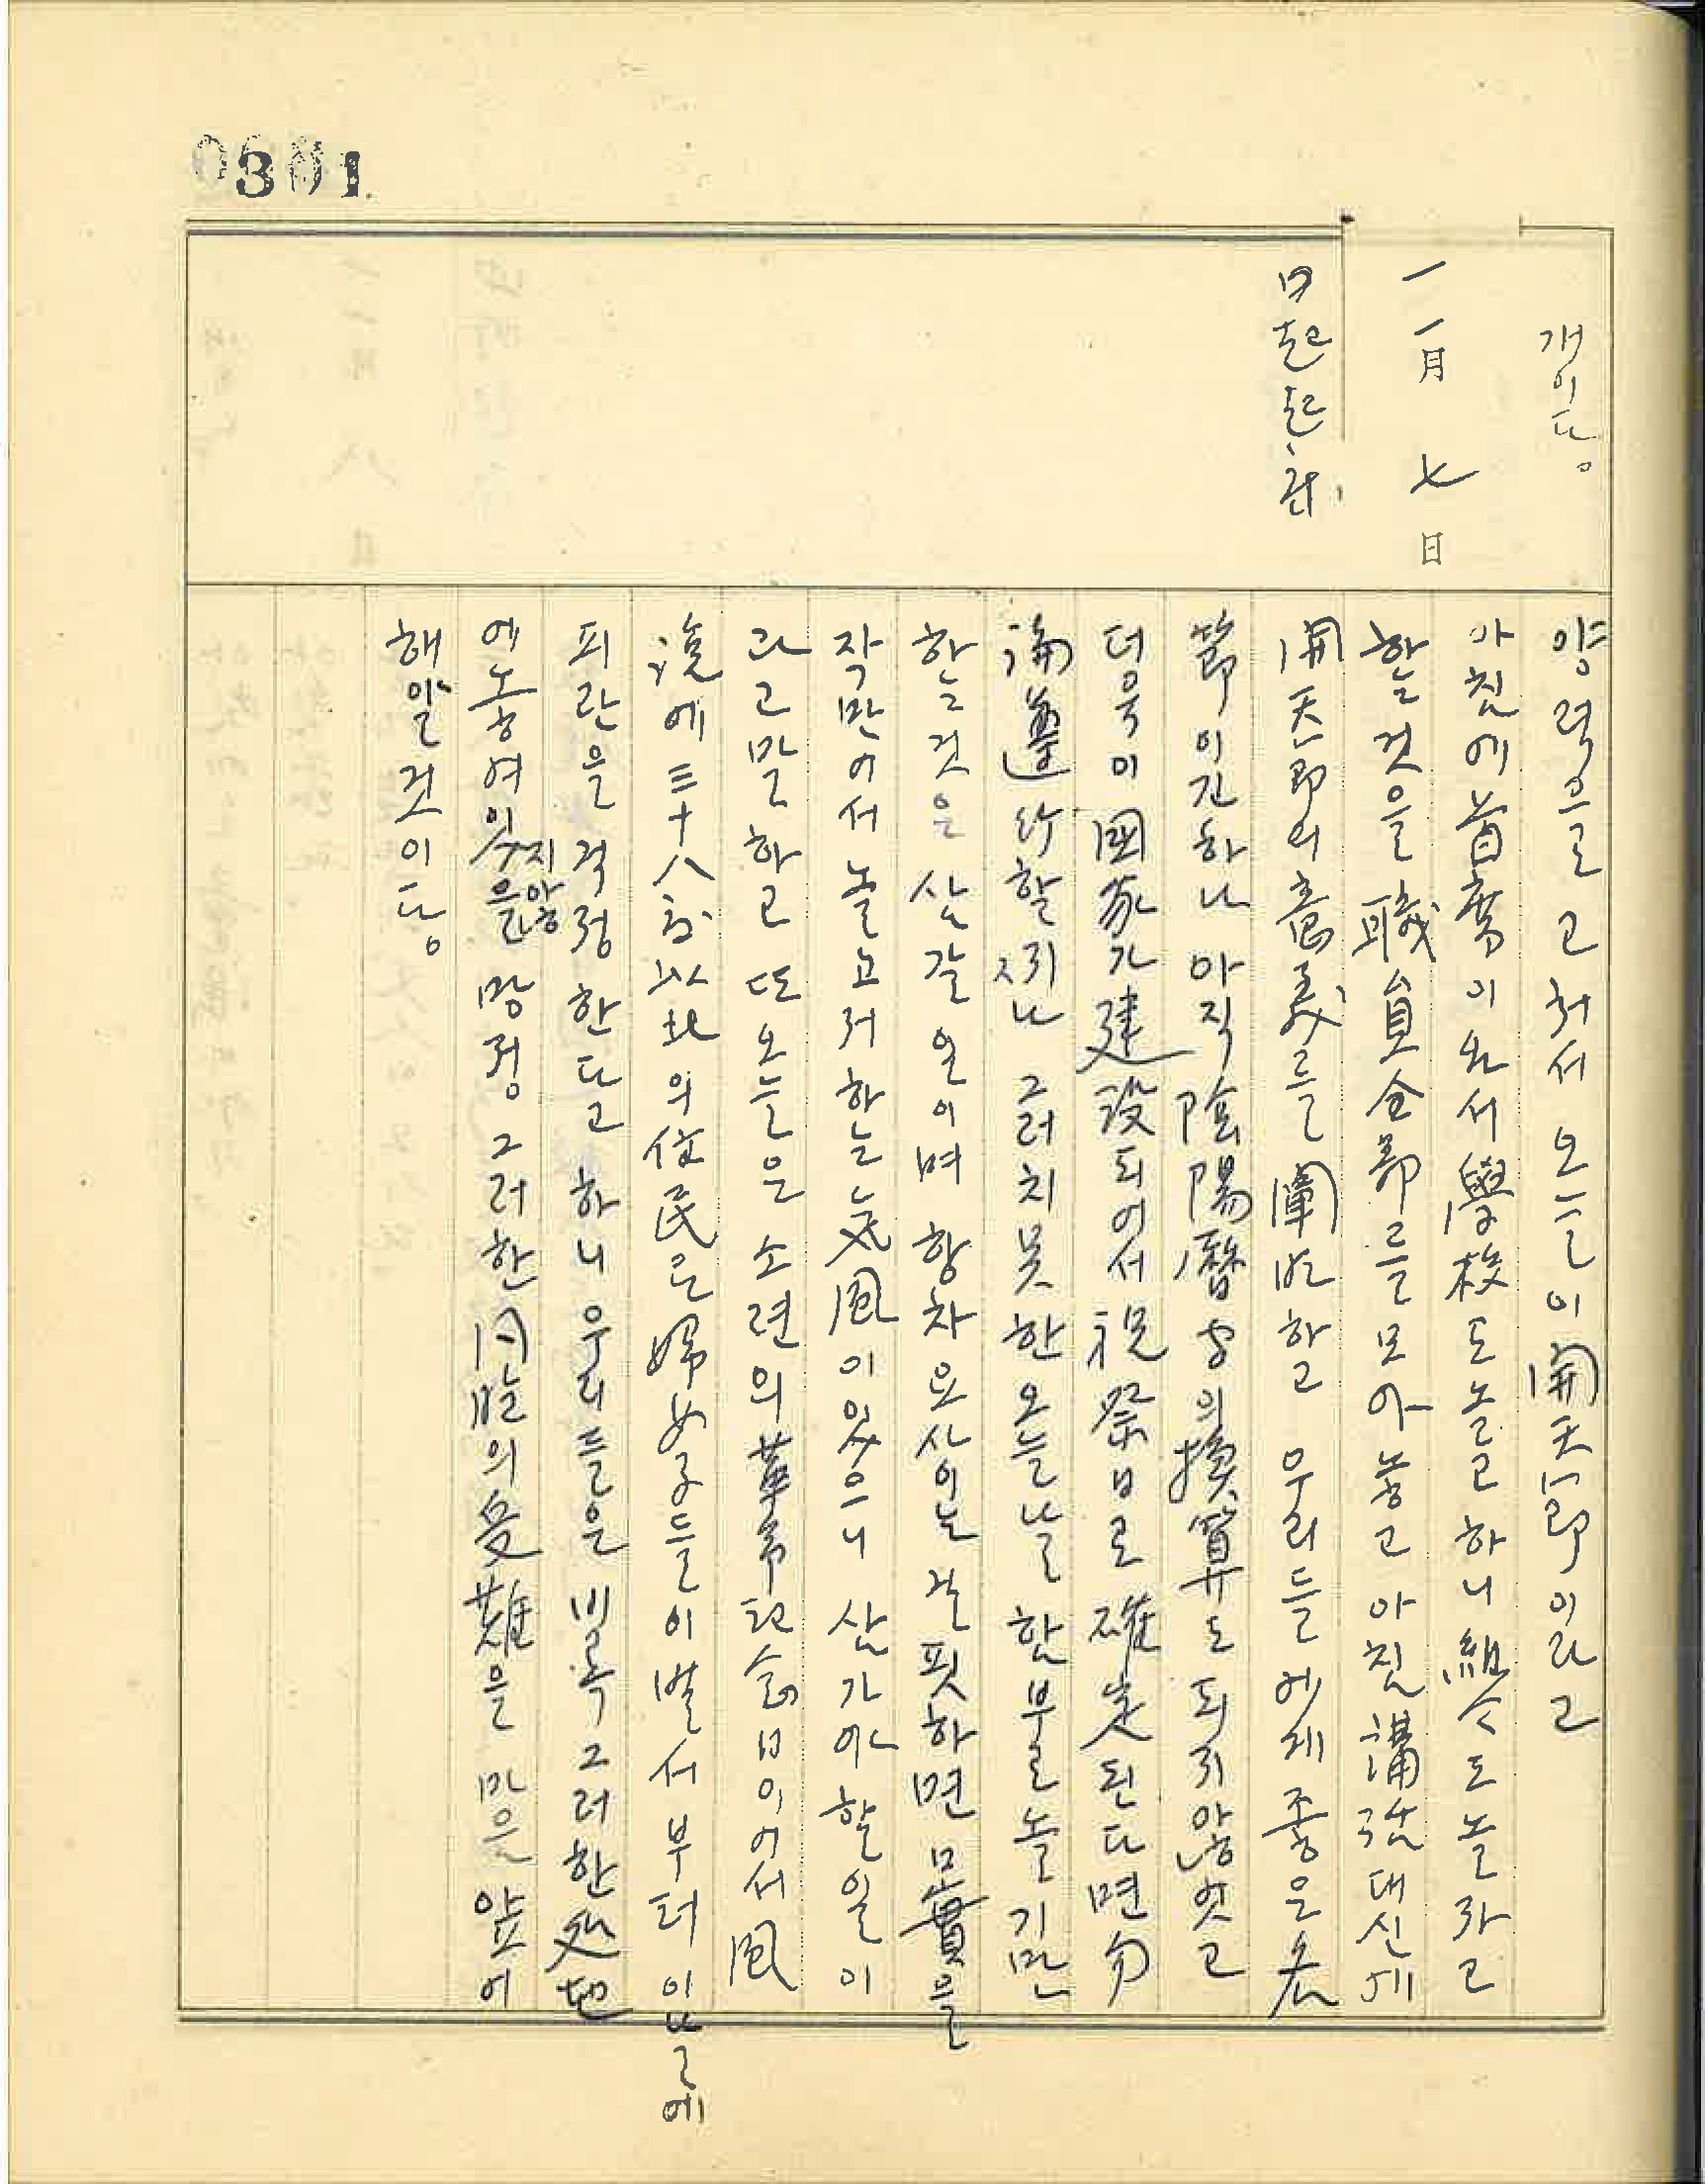 0301
개이다。
一一月 七日
양력으로 고처서 오늘이 開天節이라고
아침에 首席이 와서 學校도 놀고하니 組合도 놀라고
할것을 職員全部를 모아놓고 아침 講話대신에
開天節의 意義를 闡明하고 우리들에게 좋은 名
節이긴하나 아직 陰陽曆法의 換算도 되지않엇고
더욱이 國家가 建設되어서 祝祭日로 確定된다면 勿
論 遵行할찌나 그러치못한 오늘날 함부로 놀기만
하는것은 삼갈일이며 항차 요사이는 걸핏하면 口實을
작만어서 놀고저하는 氣風이 있으니 삼가야할일이
라고 말하고 또 오늘은 소련의 革命記念日이어서 風
說에 三十八度以北의 住民은 婦女子들이 벌서부터 읍에
피란을 걱정한다고하니 우리들은 비록 그러한 処地
에 놓여있지않을망정 그러한 同胞의 受難을 마음 앞어
해야할것이다。